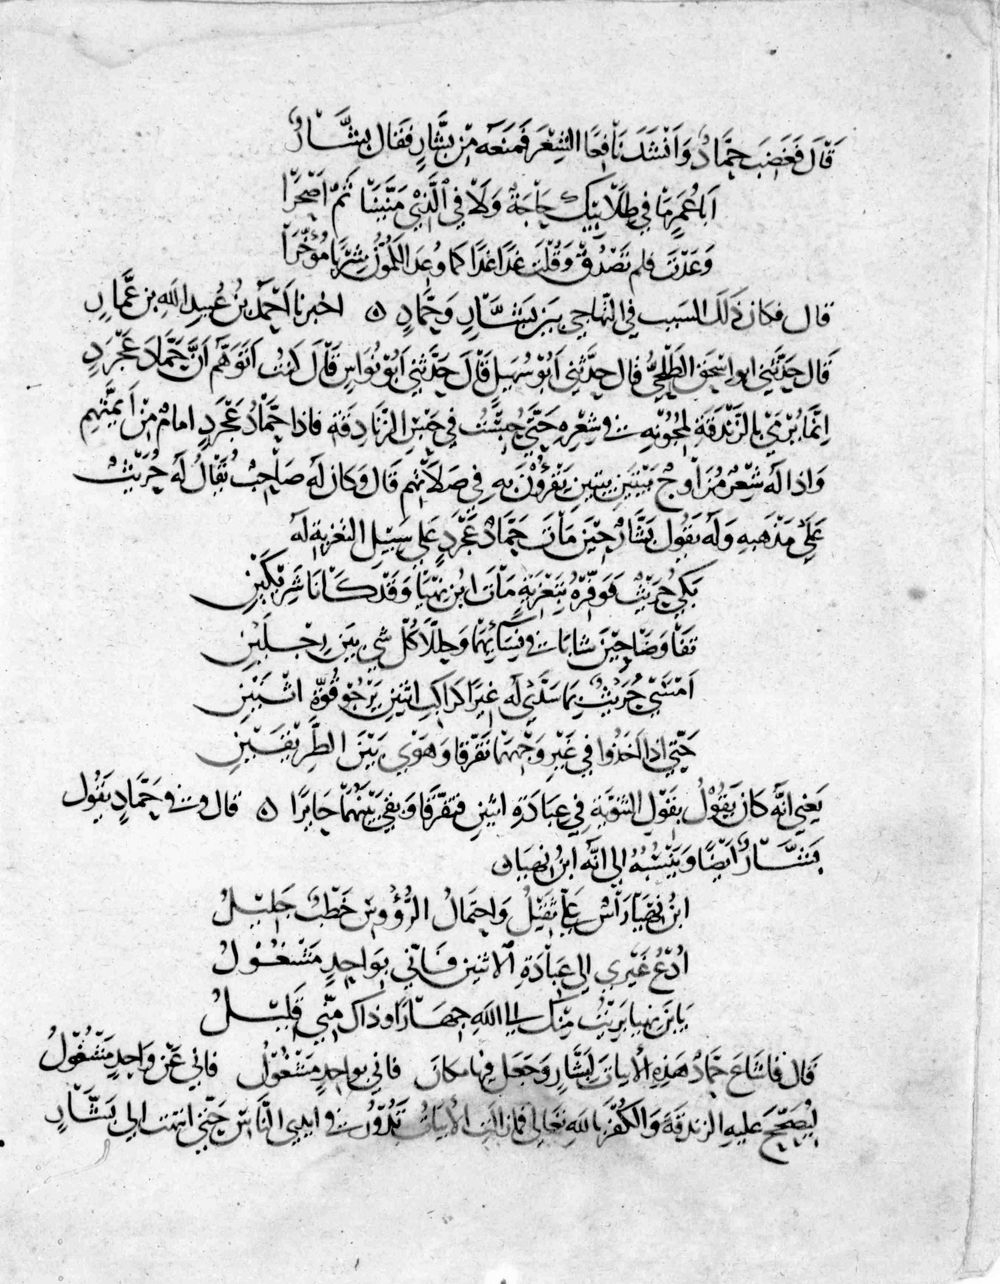 قَالَ فَغَضِبَ حَمَّادٌ وَاَنْشَدَ نَافِعًا الشِّعْرَ فَمَنَعَه مِنْ بَشَّارٍ فقال بشَّارٌ
اَبَا عُمَرٍ مَا في طِلَابِيْكَ حَاجَةٌ وَلَا في الَّذِي مَنَّيْتَنَا ثُمَّ اَصْحَرَا
وَعَدْتَ فلم تَصْدُقْ وَقُلْتَ غدًا غدًا كما وُعِدَ الكَمُّونُ شِرْبًا مُؤَخَّرَا
قال فكان ذَلَكَ السبب في التَّهاجي بَيْنَ بَشَّارٍ وَحَمَّادٍ ٥ اخبرنا اَحْمَدُ بْنُ عُبيدِ اللهِ بن عَمَّارٍ
قَال حدَّثني ابو اسْحَق الطَّلْحِيُّ قال حدَّثني أَبُوْ سُهَيل قَالَ حَدَّثَني أَبُوْ نُوَاسٍ قَالَ كنتُ اَتَوَهَّم أَنَّ حَمَّادَ عَجْرَدٍ
اِنَّمَا يُرْمَى بالزَّنْدَقَةِ لمُجُوْنِهِ في شِعْرِهِ حَتَّى حُبِسْتُ فِي حَبْسِ الزَنَادِقَةِ فاذا حَمَّادُ عَجْرَدٍ امامٌ مِنْ اَيمَّتِهِم
وَاذا لَه شِعْرٌ مُزَاوَجٌ بَيْتَيْنِ بيتَيْنِ يَقْرَؤُوْنَ بِه فِي صَلَاتِهم قَال وَكان لَه صَاحِبٌ يُقَالُ لَه حُرَيْثٌ
عَلَى مَذْهَبِهِ وَلَهُ يَقُول بَشَّارٌ حِيْنَ مَاتَ حَمَّادُ عَجْرَدٍ عَلَى سَبِيْلِ التعْزِيةِ لَه
بَكَى حُرَيْثٌ فَوَقِّرْهُ بتَعْزِيَةٍ مَاتَ ابْنُ نِهْيَا وَقَدْ كَانَا شَرِيْكَيْنِ
تفاوَضَا حِيْنَ شابَا في نِسَائِهِمَا وَحلّلا كُلَّ شيٍ بَيْنَ رِجْلَيْنِ
اَمْسَى حُرَيْثٌ بِمَا سَدَّى لَه غِيَرًا كَرَاكبِ اثنينِ يَرْجُوْ قُوَّةَ اثْنَيْنِ
حَتَّى اذا اَخَذَا فِي غَيْرِ وَجْهِهِمَا تفَرَّقا وَهَوَى بَيْنَ الطَّرِيْقَيْنِ
يَعْنِي انَّه كَانَ يَقُوْلُ بِقَوْلِ الثنَوِيَّةِ فِي عِبَادَةِ اثنينِ فتفَرَّقَا وَبَقِيَ بَيْنَهُمَا حَايرًا ٥ قال وفي حَمَّادٍ يقول
بَشَّارٌ اَيضًا وَيَنْسُبُهُ الى انَّه ابْنُ نِهْيَا ٥
ابْنُ نِهْيَا رَاْسٌ عَلَيَّ ثَقِيْلُ وَاحتِمَالُ الرُّؤُوْسِ خَطْبٌ جَلِيْلُ
اُدْعُ غَيْرِي الى عِبَادَةِ الاثنينِ فَاِنّي بوَاحِدٍ مَشْغُوْلُ
يَا بْنَ نِهيا بَرِئْتُ مِنْكَ الى اللهِ جِهَارًا وَذاكَ مِنّي قَلِيْلُ
قال فاشَاعَ حمَّادٌ هَذِهِ الابياتَ لِبَشَّارٍ وَجَعَلَ فيها مكانَ فاني بواحِدٍ مَشْغُوْلُ فاني عَنْ وَاحِدٍ مَشْغُوْلُ
ليُصَحِّحَ عَلَيهِ الزندقَةَ وَالكُفْرَ باللهِ تعَالى فما زالتِ الابياتُ تَدُوْرُ في ايدي النَّاسِ حَتَّى انتهت الى بَشَّارٍ